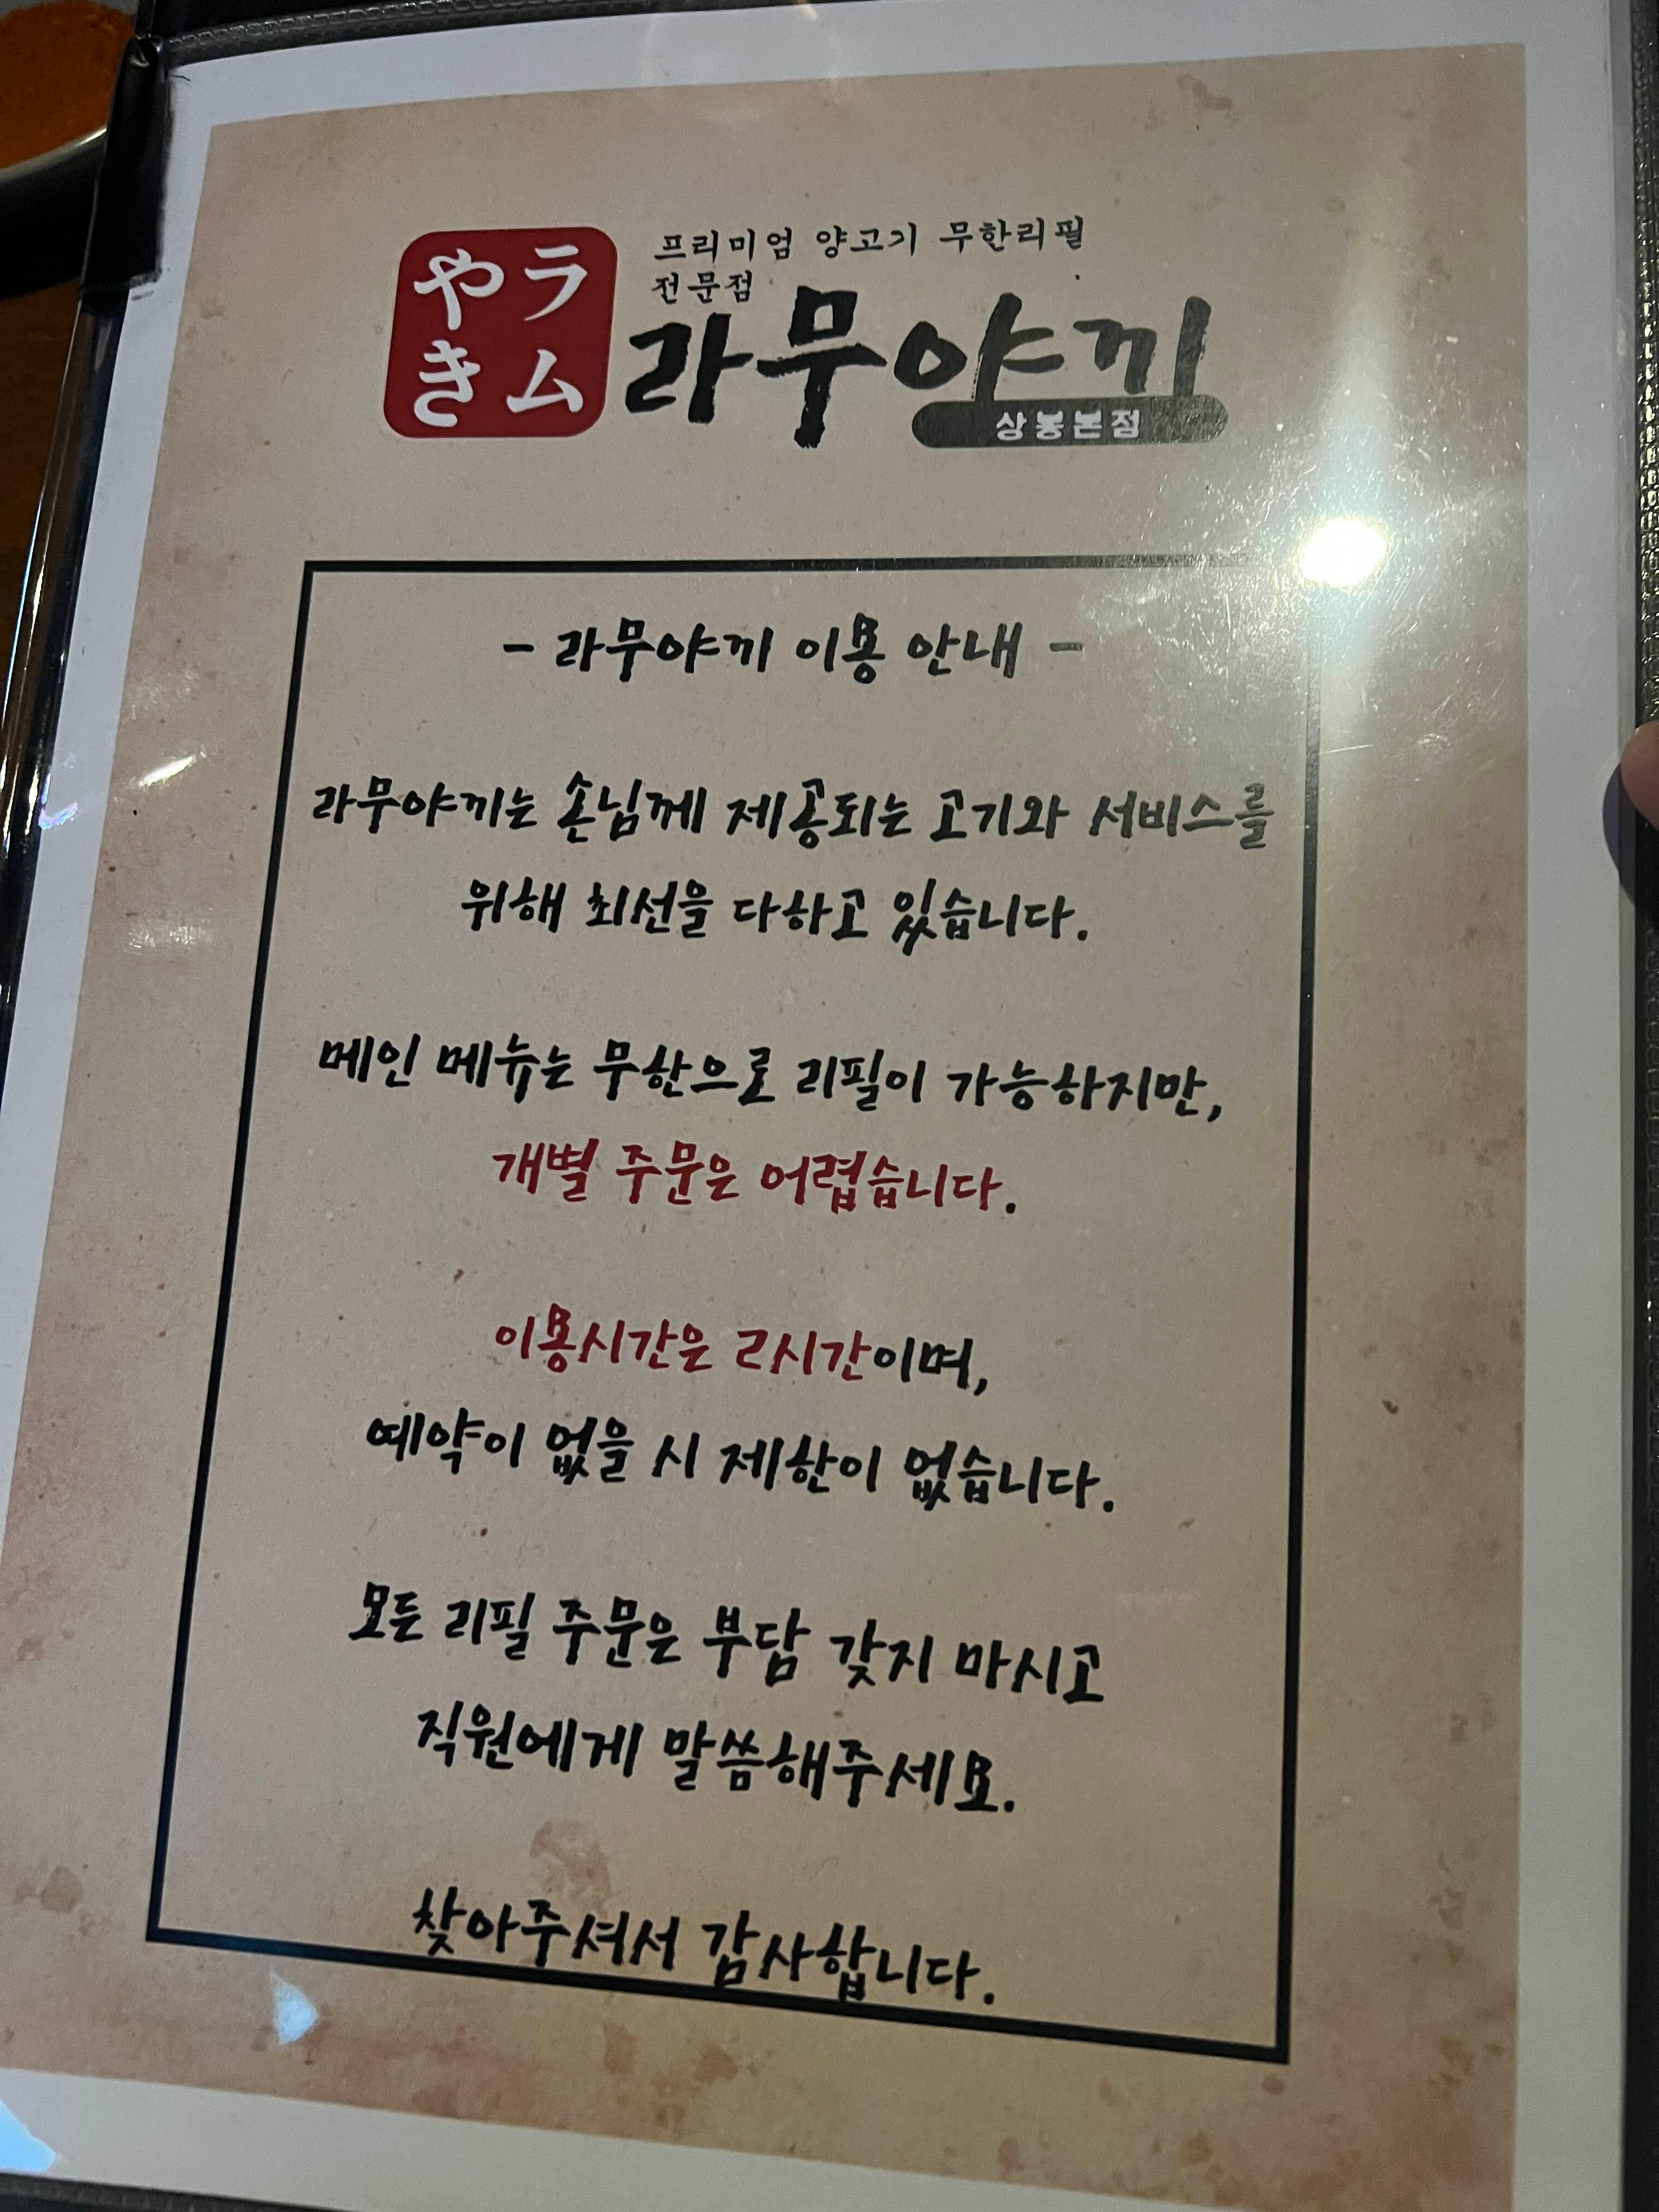 ラム
やき
프리미엄 양고기 무한리필
전문점
라무야끼
상봉본점
- 라무야끼 이용 안내 -
라무야끼는 손님께 제공되는 고기와 서비스를
위해 최선을 다하고 있습니다.
메인 메뉴는 무한으로 리필이 가능하지만,
개별 주문은 어렵습니다.
이용시간은 2시간이며,
예약이 없을 시 제한이 없습니다.
모든 리필 주문은 부담 갖지 마시고
직원에게 말씀해주세요.
찾아주셔서 감사합니다.